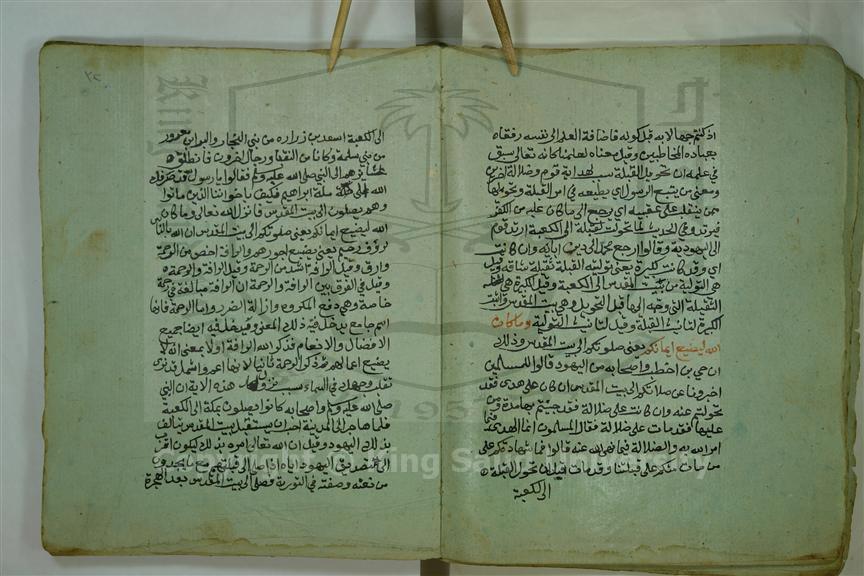 اذ كنتم جهالا به قبل كونه فاضافة العلم الى نفسه رفقا
بعباده المخاطبين وقيل معناه لعلمنا كانه تعالى سبق
في علمه ان تحويل القبلة سبب لهداية قوم وضلالة اخرين
ومعنى من يتبع الرسول اي يطيعه في امر القبلة وتحويلها
ممن ينقلب على عقبيه اي يرجع الى ما كان عليه من الكفر
فيرتد وفي الحديث لما تحولت القبلة الى الكعبة ارتد قوم
الى اليهودية وقالوا رجع محمد الى دين ابائه وان كانت
اي وقد كانت لكبيرة يعني تولية القبلة ثقيلة شاقة وقيل
هي التولية من بيت المقدس الى الكعبة وقيل الكبيرة هي
القبلة التي وجهه اليها قبل التحويل وهي بيت المقدس وانث
الكبيرة لتانيث القبلة وقيل لتانيث التولية وما كان
الله ليضيع ايمانكم يعني صلوتكم الى بيت المقدس وذلك
ان حيي بن اخطب واصحابه من اليهود قالوا للمسلمين
اخبرونا عن صلاتكم الى بيت المقدس ان كان على هدى فقد
تحولتم عنه وان كانت على ضلالة فقد دنتم بها مدة ومن
عليها فقد مات على ضلالة فقال المسلمون انما الهدى فيما
امر الله به والضلالة فيما نهى الله عنه قالوا فما شهادتكم على
من مات منكم على قبلتنا وقد مات قبل ان تحول القبلة
الى الكعبة
٣٢
الى الكعبة اسعد بن زرارة من بني النجار والبراء بن معرور
من بني سلمة وكانا من النقبا ورجال اخرون فانطلق
عشائرهم الى النبي صلى الله عليه وسلم فقالوا يا رسول الله قد صرفك
الله الى قبلة ابراهيم فكيف باخواننا الذين ماتوا
وهم يصلون الى بيت المقدس فانزل الله تعالى وما كان
الله ليضيع ايمانكم يعني صلوتكم الى بيت المقدس ان الله بالناس
لرؤف رحيم يعني لا يضيع اجورهم والرافة اخص من الرحمة
وارق وقيل الرافة اشد من الرحمة وقيل الرافة والرحمة
وقيل في الفرق بين الرافة والرحمة ان الرافة مبالغة في رحمة
خاصة وهي دفع المكروه وازالة الضرر واما الرحمة فانها
اسم جامع يدخل فيه ذلك المعنى ويدخل فيه ايضا جميع
الافضال والانعام فذكر الله الرافة اولا بمعنى انه لا
يضيع اعمالهم ثم ذكر الرحمة ثانيا لانها اعم واشمل قد نرى
تقلب وجهك في السماء سبب نزول هذه الاية ان النبي
صلى الله عليه وسلم واصحابه كانوا يصلون بمكة الى الكعبة
فلما هاجر الى المدينة احب ان يستقبل بيت المقدس يتالف
بذلك اليهود وقيل ان الله تعالى امره بذلك ليكون اقرب
الى تصديق اليهود اياه اذا صلى الى قبلتهم مع ما يجدون
من نعته وصفته في التورية فصلى الى بيت المقدس بعد الهجرة